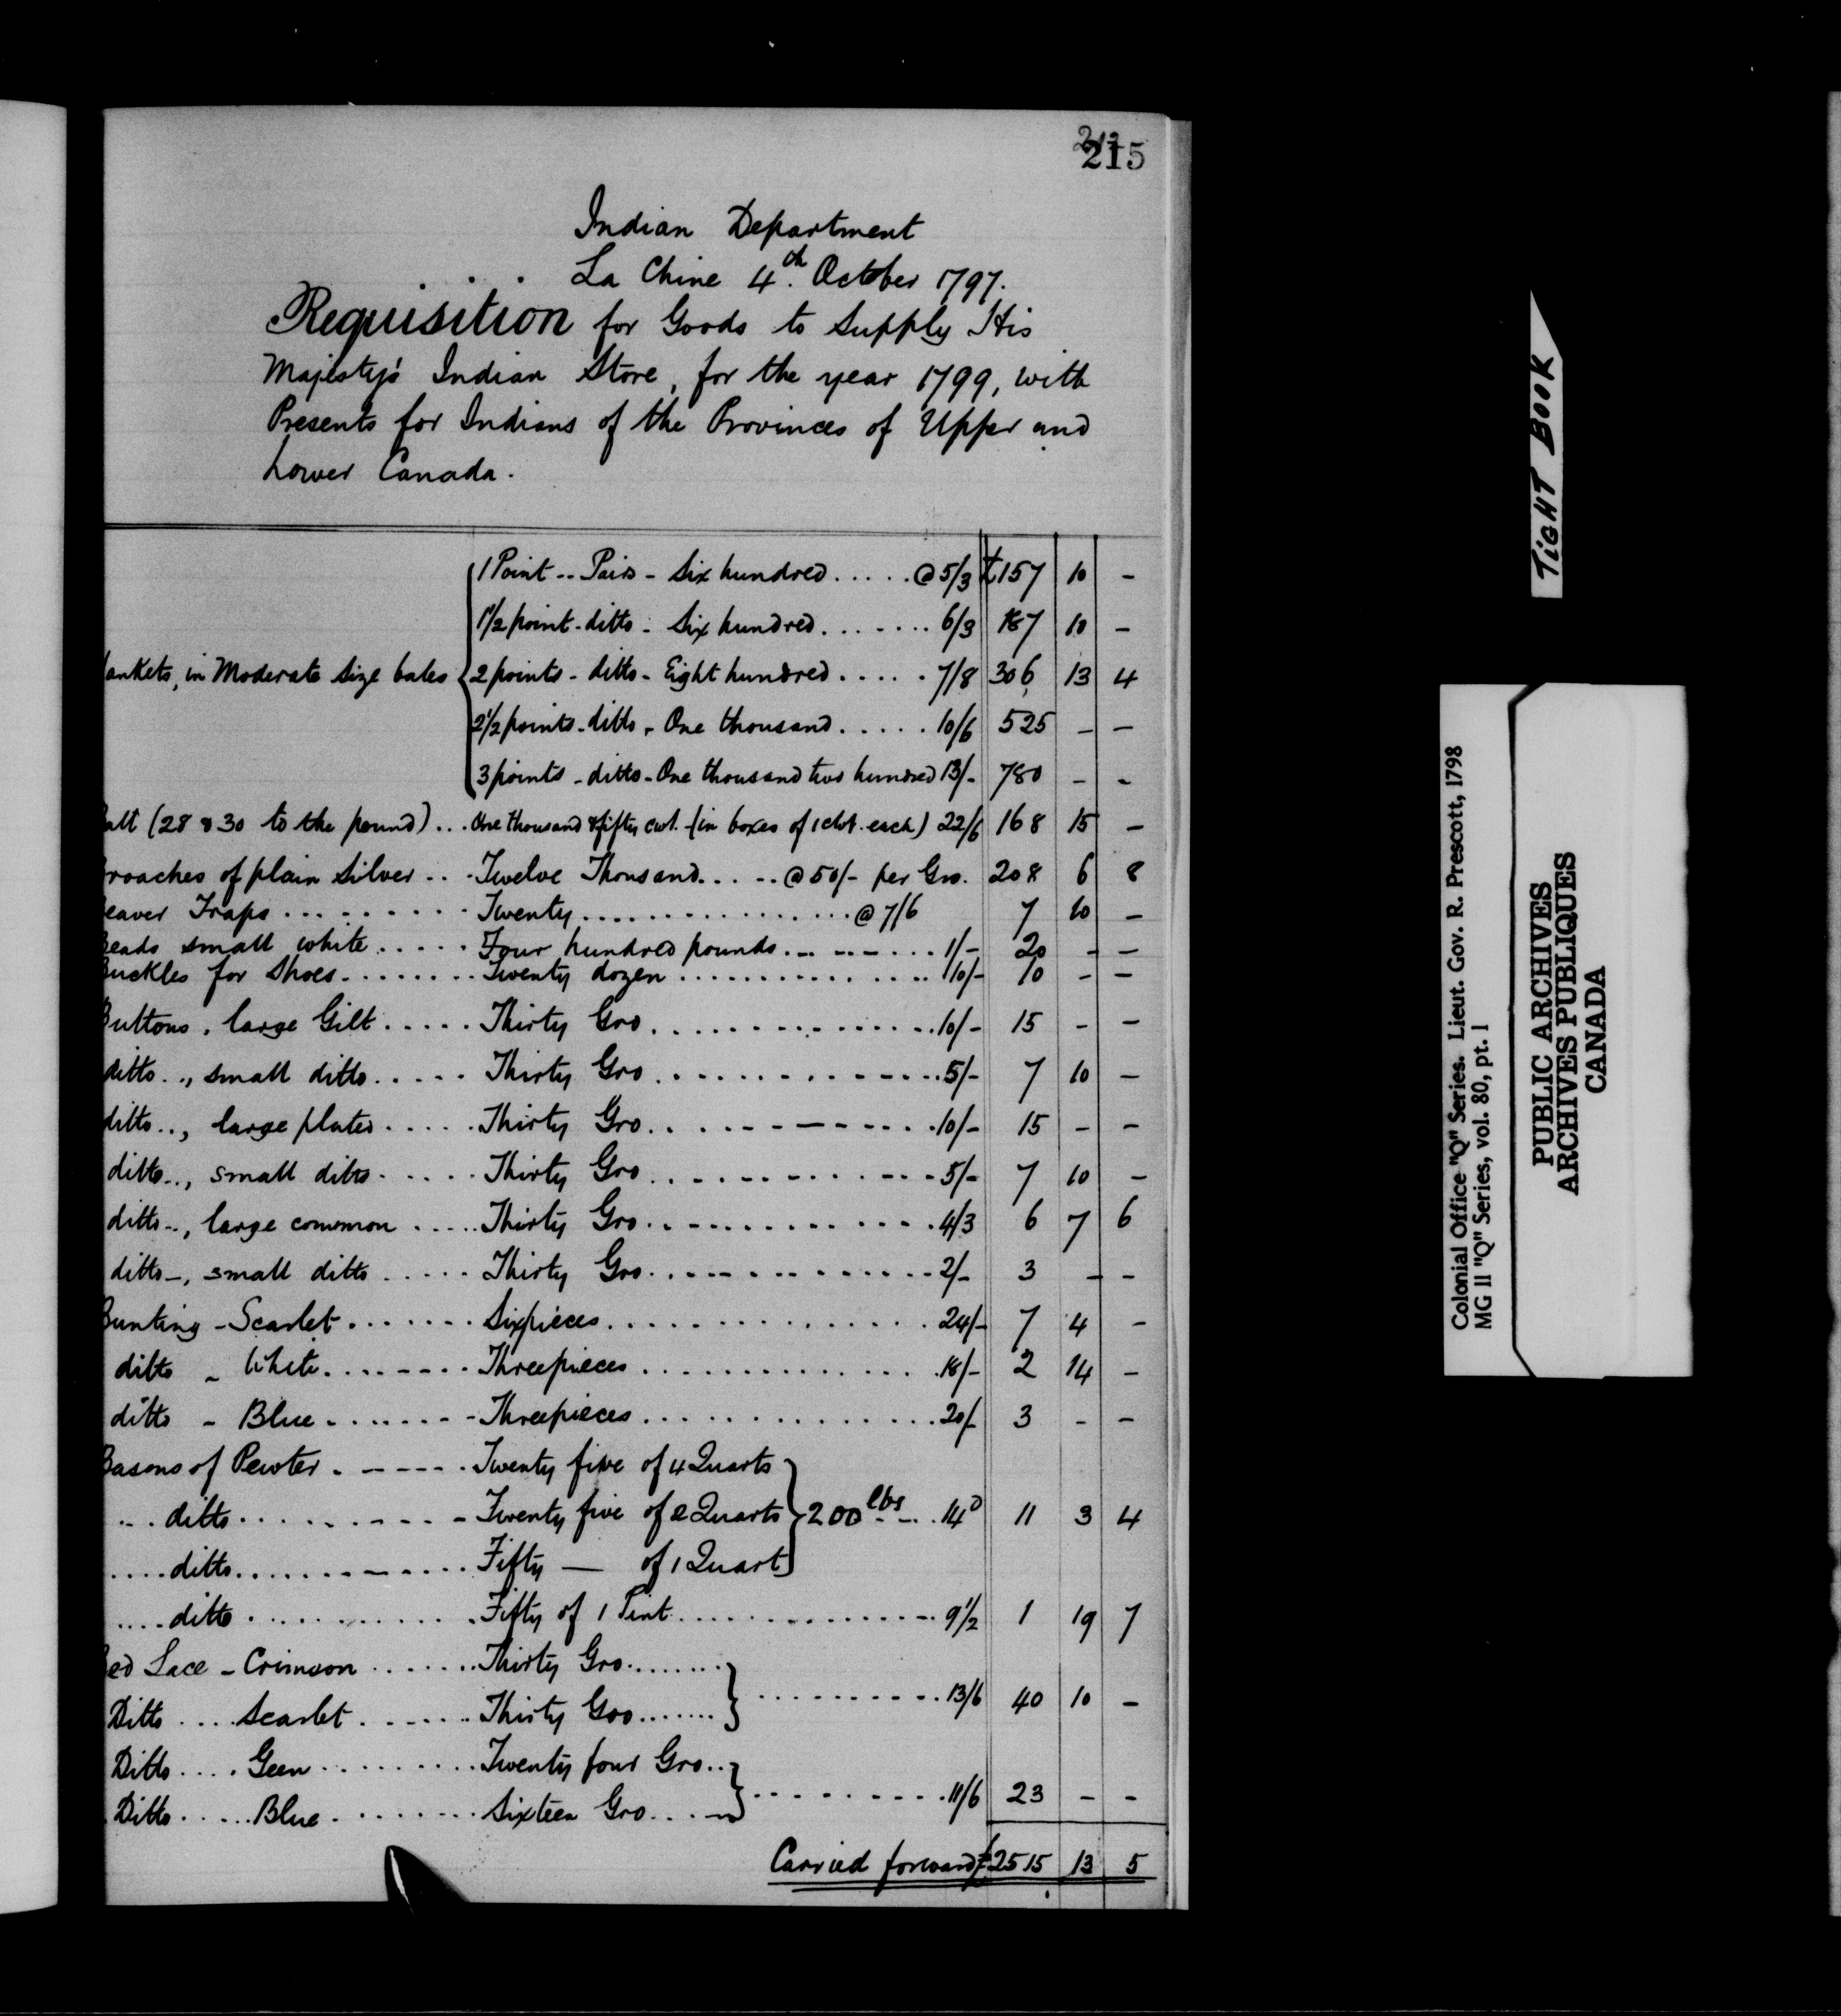 215
Indian Department
La Chine 4th. October 1797.
Requisition for Goods to Supply His
Majesty's Indian Store, for the year 1799, with
Presents for Indians of the Provinces of Upper and
Lower Canada.
1 Point -- Pairs - Six hundred ..... @ 5/3 £157 10 -
1 1/2 point - ditto - Six hundred ....... 6/3 187 10 -
lankets, in Moderate Size bales 2 points - ditto - Eight hundred ..... 7/8 306 13 4
2 1/2 points - ditto - One thousand ..... 10/6 525 - -
3 points - ditto - One thousand two hundred 13/- 780 - -
Ball (28 & 30 to the pound) ... One thousand & fifty cwt. (in boxes of 1 cwt. each) 22/6 168 15 -
Broaches of plain Silver ... Twelve Thousand ..... @ 50/- per Gro. 208 6 8
Beaver Traps ......... Twenty ................ @ 7/6 7 10 -
Beads small white ..... Four hundred pounds ......... 1/- 20 - -
Buckles for Shoes ........ Twenty dozen ............... 10/- 10 - -
Buttons, large Gilt ..... Thirty Gro ............... 10/- 15 - -
ditto .., small ditto ..... Thirty Gro ............... 5/- 7 10 -
ditto .., large plated ..... Thirty Gro ............... 10/- 15 - -
ditto .., small ditto ..... Thirty Gro ............... 5/- 7 10 -
ditto .., large common ..... Thirty Gro ............... 4/3 6 7 6
ditto -, small ditto ..... Thirty Gro ............... 2/- 3 - -
Bunting - Scarlet ....... Six pieces ................ 24/- 7 4 -
ditto - White ........ Three pieces .............. 18/- 2 14 -
ditto - Blue ........ Three pieces .............. 20/- 3 - -
Basons of Pewter ...... Twenty five of 4 Quarts
... ditto .......... Twenty five of 2 Quarts 200 lbs .... 14D 11 3 4
.... ditto ............ Fifty — of 1 Quart
.... ditto ............ Fifty of 1 Pint ............... 9 1/2 1 19 7
Bed Lace - Crimson ....... Thirty Gro ........
Ditto .... Scarlet ....... Thirty Gro ....... .......... 13/6 40 10 -
Ditto .... Geen .......... Twenty four Gro ..
Ditto ..... Blue ......... Sixteen Gro .... .......... 11/6 23 - -
Carried forward £2515 13 5
TIGHT BOOK
Colonial Office "Q" Series. Lieut. Gov. R. Prescott, 1798
MG 11 "Q" Series, vol. 80, pt. 1
PUBLIC ARCHIVES
ARCHIVES PUBLIQUES
CANADA